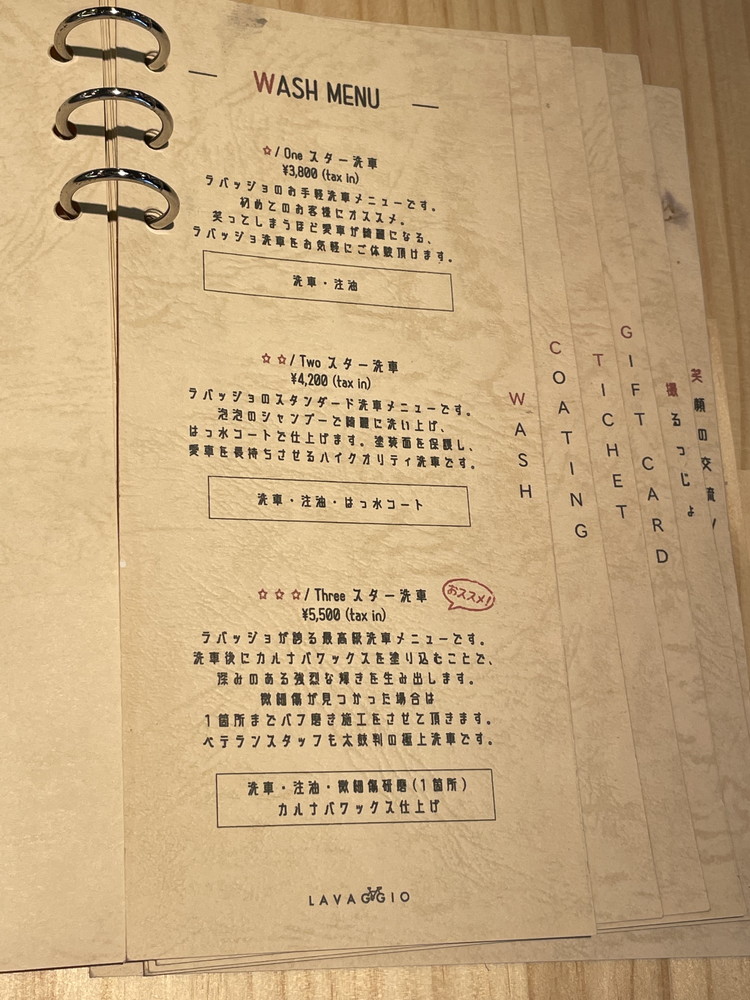 WASH MENU
☆/One スター洗車
¥3,800 (tax in)
ラバッジョのお手軽洗車メニューです。
初めてのお客様にオススメ。
笑ってしまうほど愛車が綺麗になる、
ラバッジョ洗車をお気軽にご体験頂けます。
洗車・注油
☆☆/Two スター洗車
¥4,200 (tax in)
ラバッジョのスタンダード洗車メニューです。
泡泡のシャンプーで綺麗に洗い上げ、
はっ水コートで仕上げます。塗装面を保護し、
愛車を長持ちさせるハイクオリティ洗車です。
洗車・注油・はっ水コート
☆☆☆/Three スター洗車
おススメ!
¥5,500 (tax in)
ラバッジョが誇る最高級洗車メニューです。
洗車後にカルナバワックスを塗り込むことで、
深みのある強烈な輝きを生み出します。
微細傷が見つかった場合は
1箇所までバフ磨き施工をさせて頂きます。
ベテランスタッフも太鼓判の極上洗車です。
洗車・注油・微細傷研磨(1箇所)
カルナバワックス仕上げ
LAVAGGIO
WASH
COATING
TICHET
GIFT CARD
撮るっじょ
笑顔の交流!